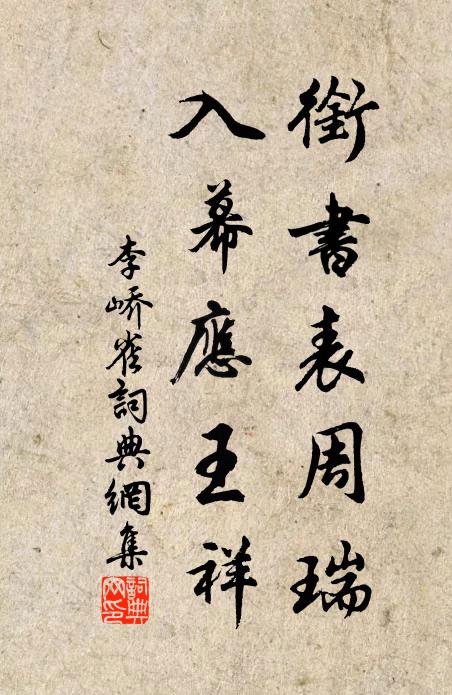 銜書表周瑞
入幕應王祥
李嶠雀詞典網集
詞典網印